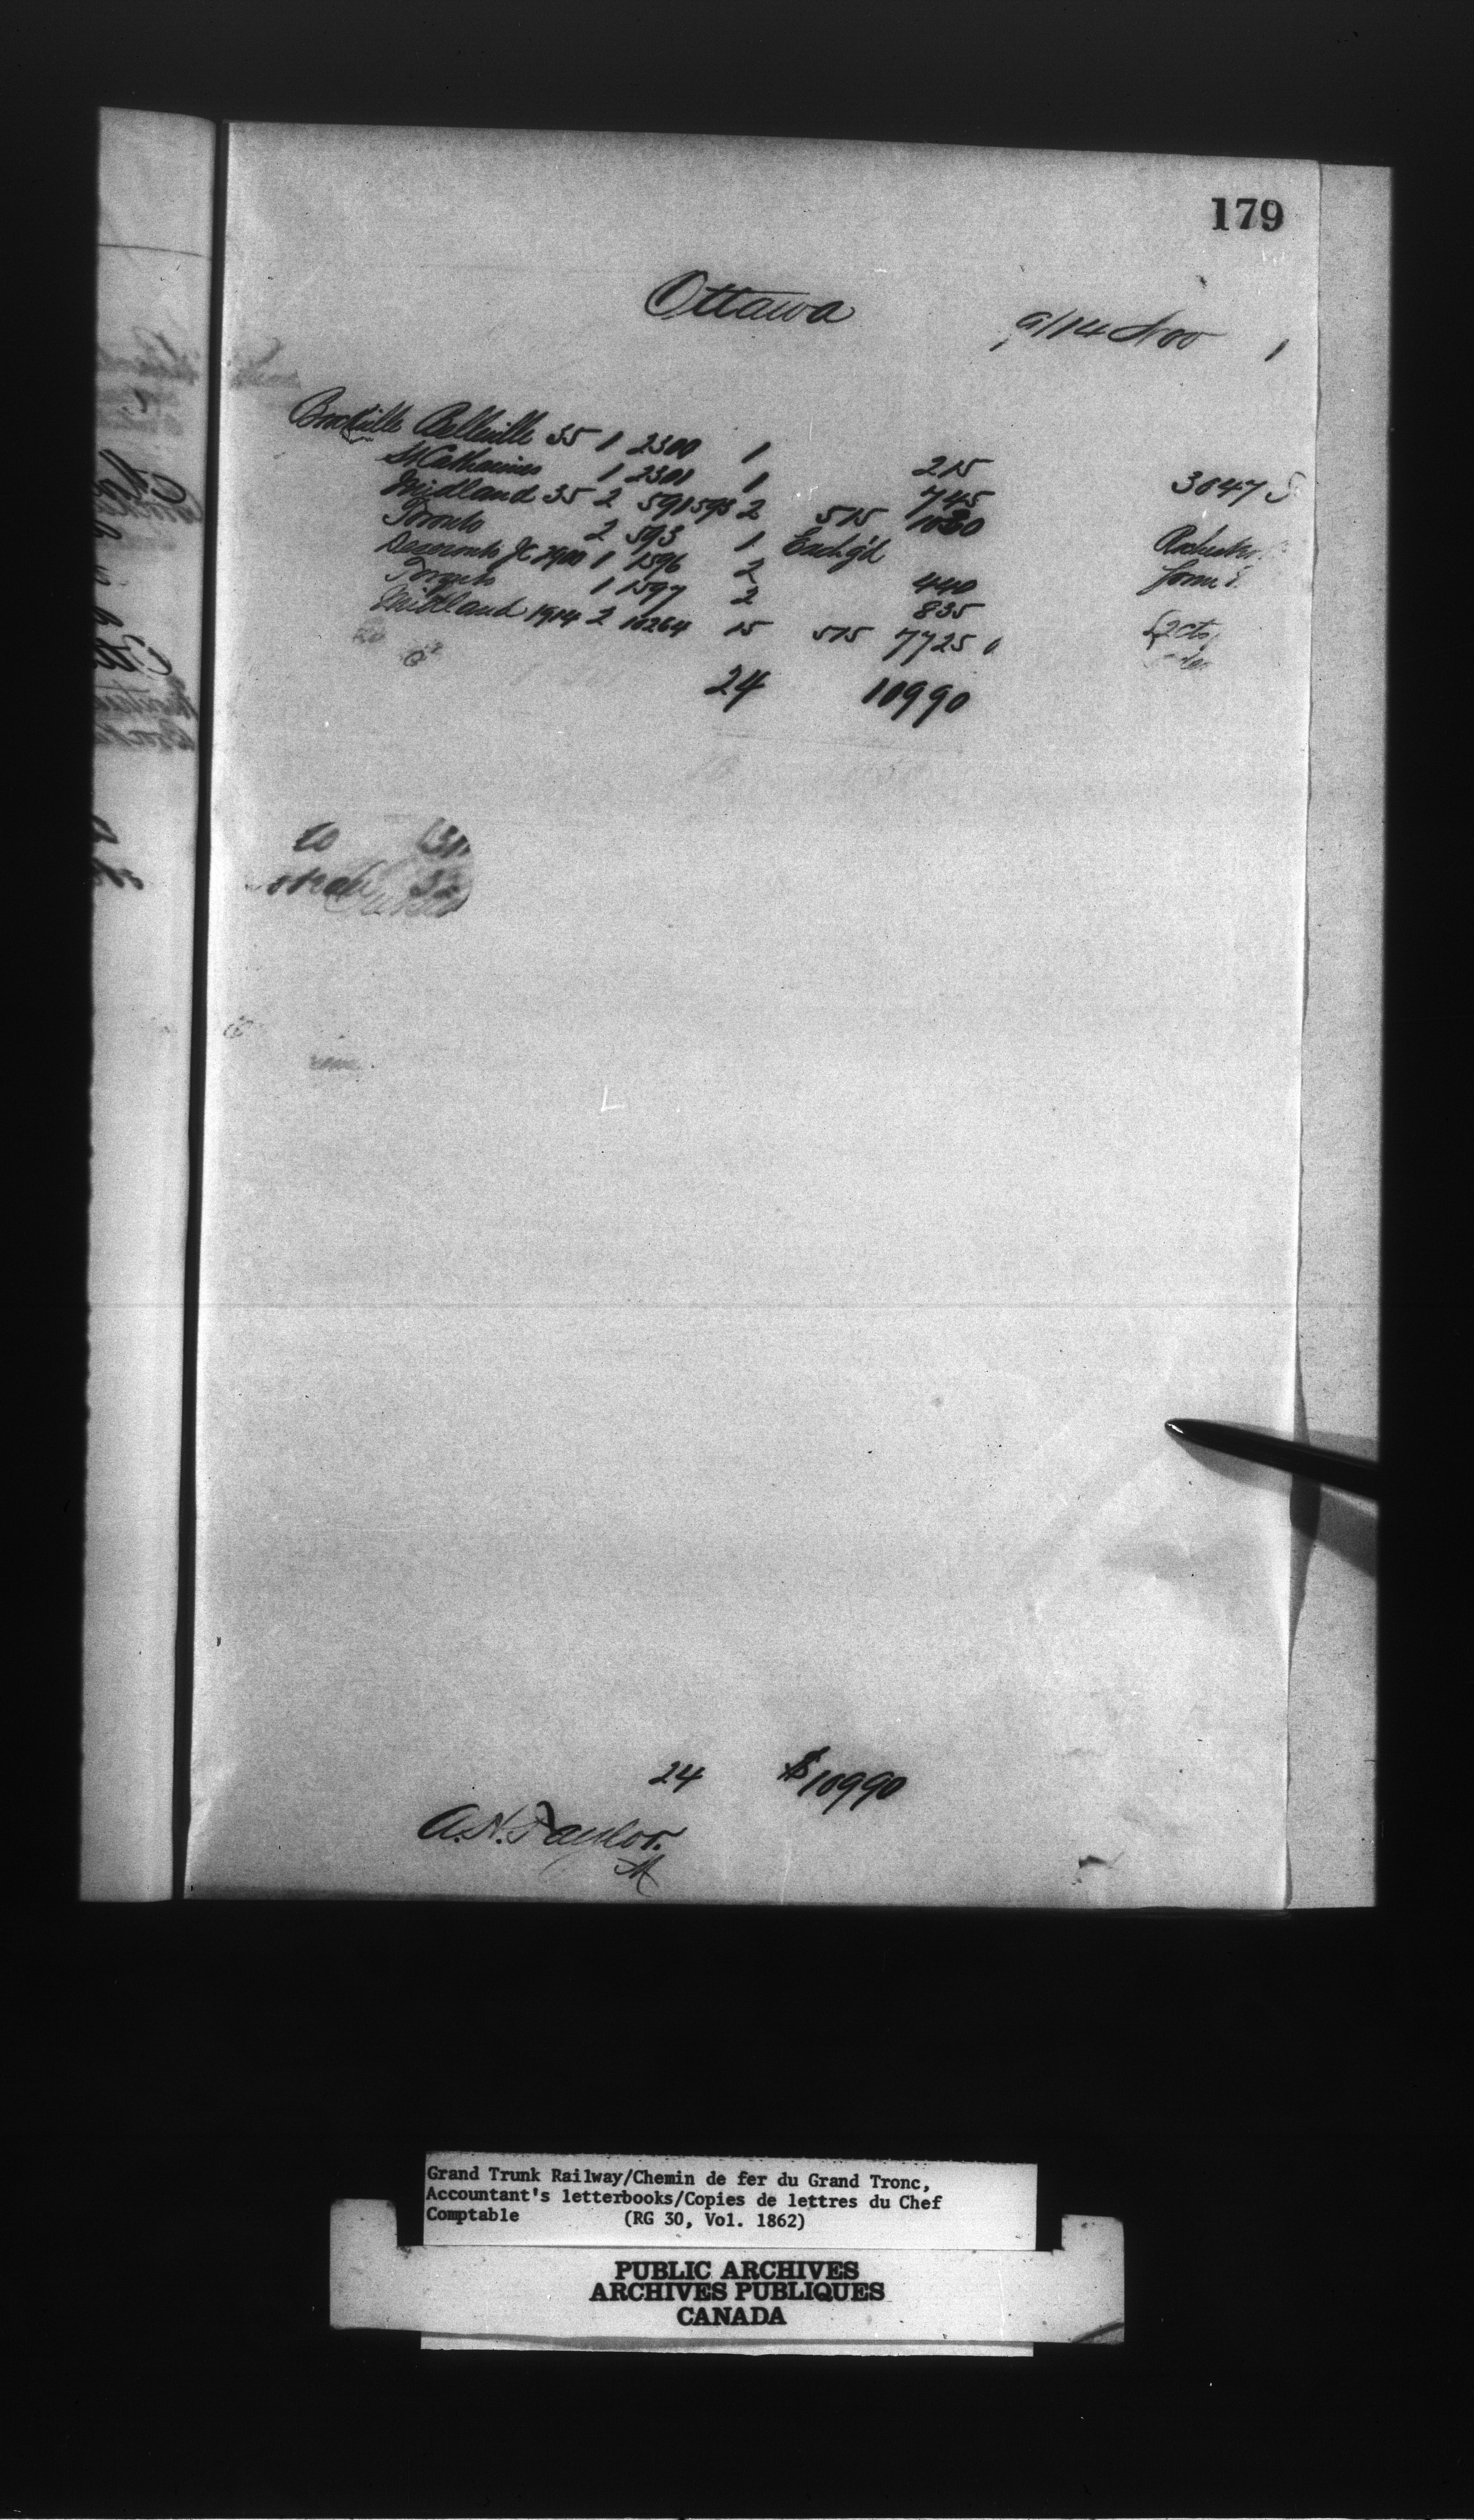 179
Ottawa
9/14 Nov 1
Brockville Belleville 35 1 2300 1 215
St Catharines 1 2301 1 745 3047 S
Midland 35 2 591593 2 515 1030
Toronto 2 593 1 Exch'gd
Deseronto Jc 2900 1 1596 2 440
Toronto 1 1597 2 835
Midland 1914 2 10264 15 515 7725
2cts
24 10990
24 $10990
A. H. Taylor.
Grand Trunk Railway/Chemin de fer du Grand Tronc,
Accountant's letterbooks/Copies de lettres du Chef
Comptable (RG 30, Vol. 1862)
PUBLIC ARCHIVES
ARCHIVES PUBLIQUES
CANADA